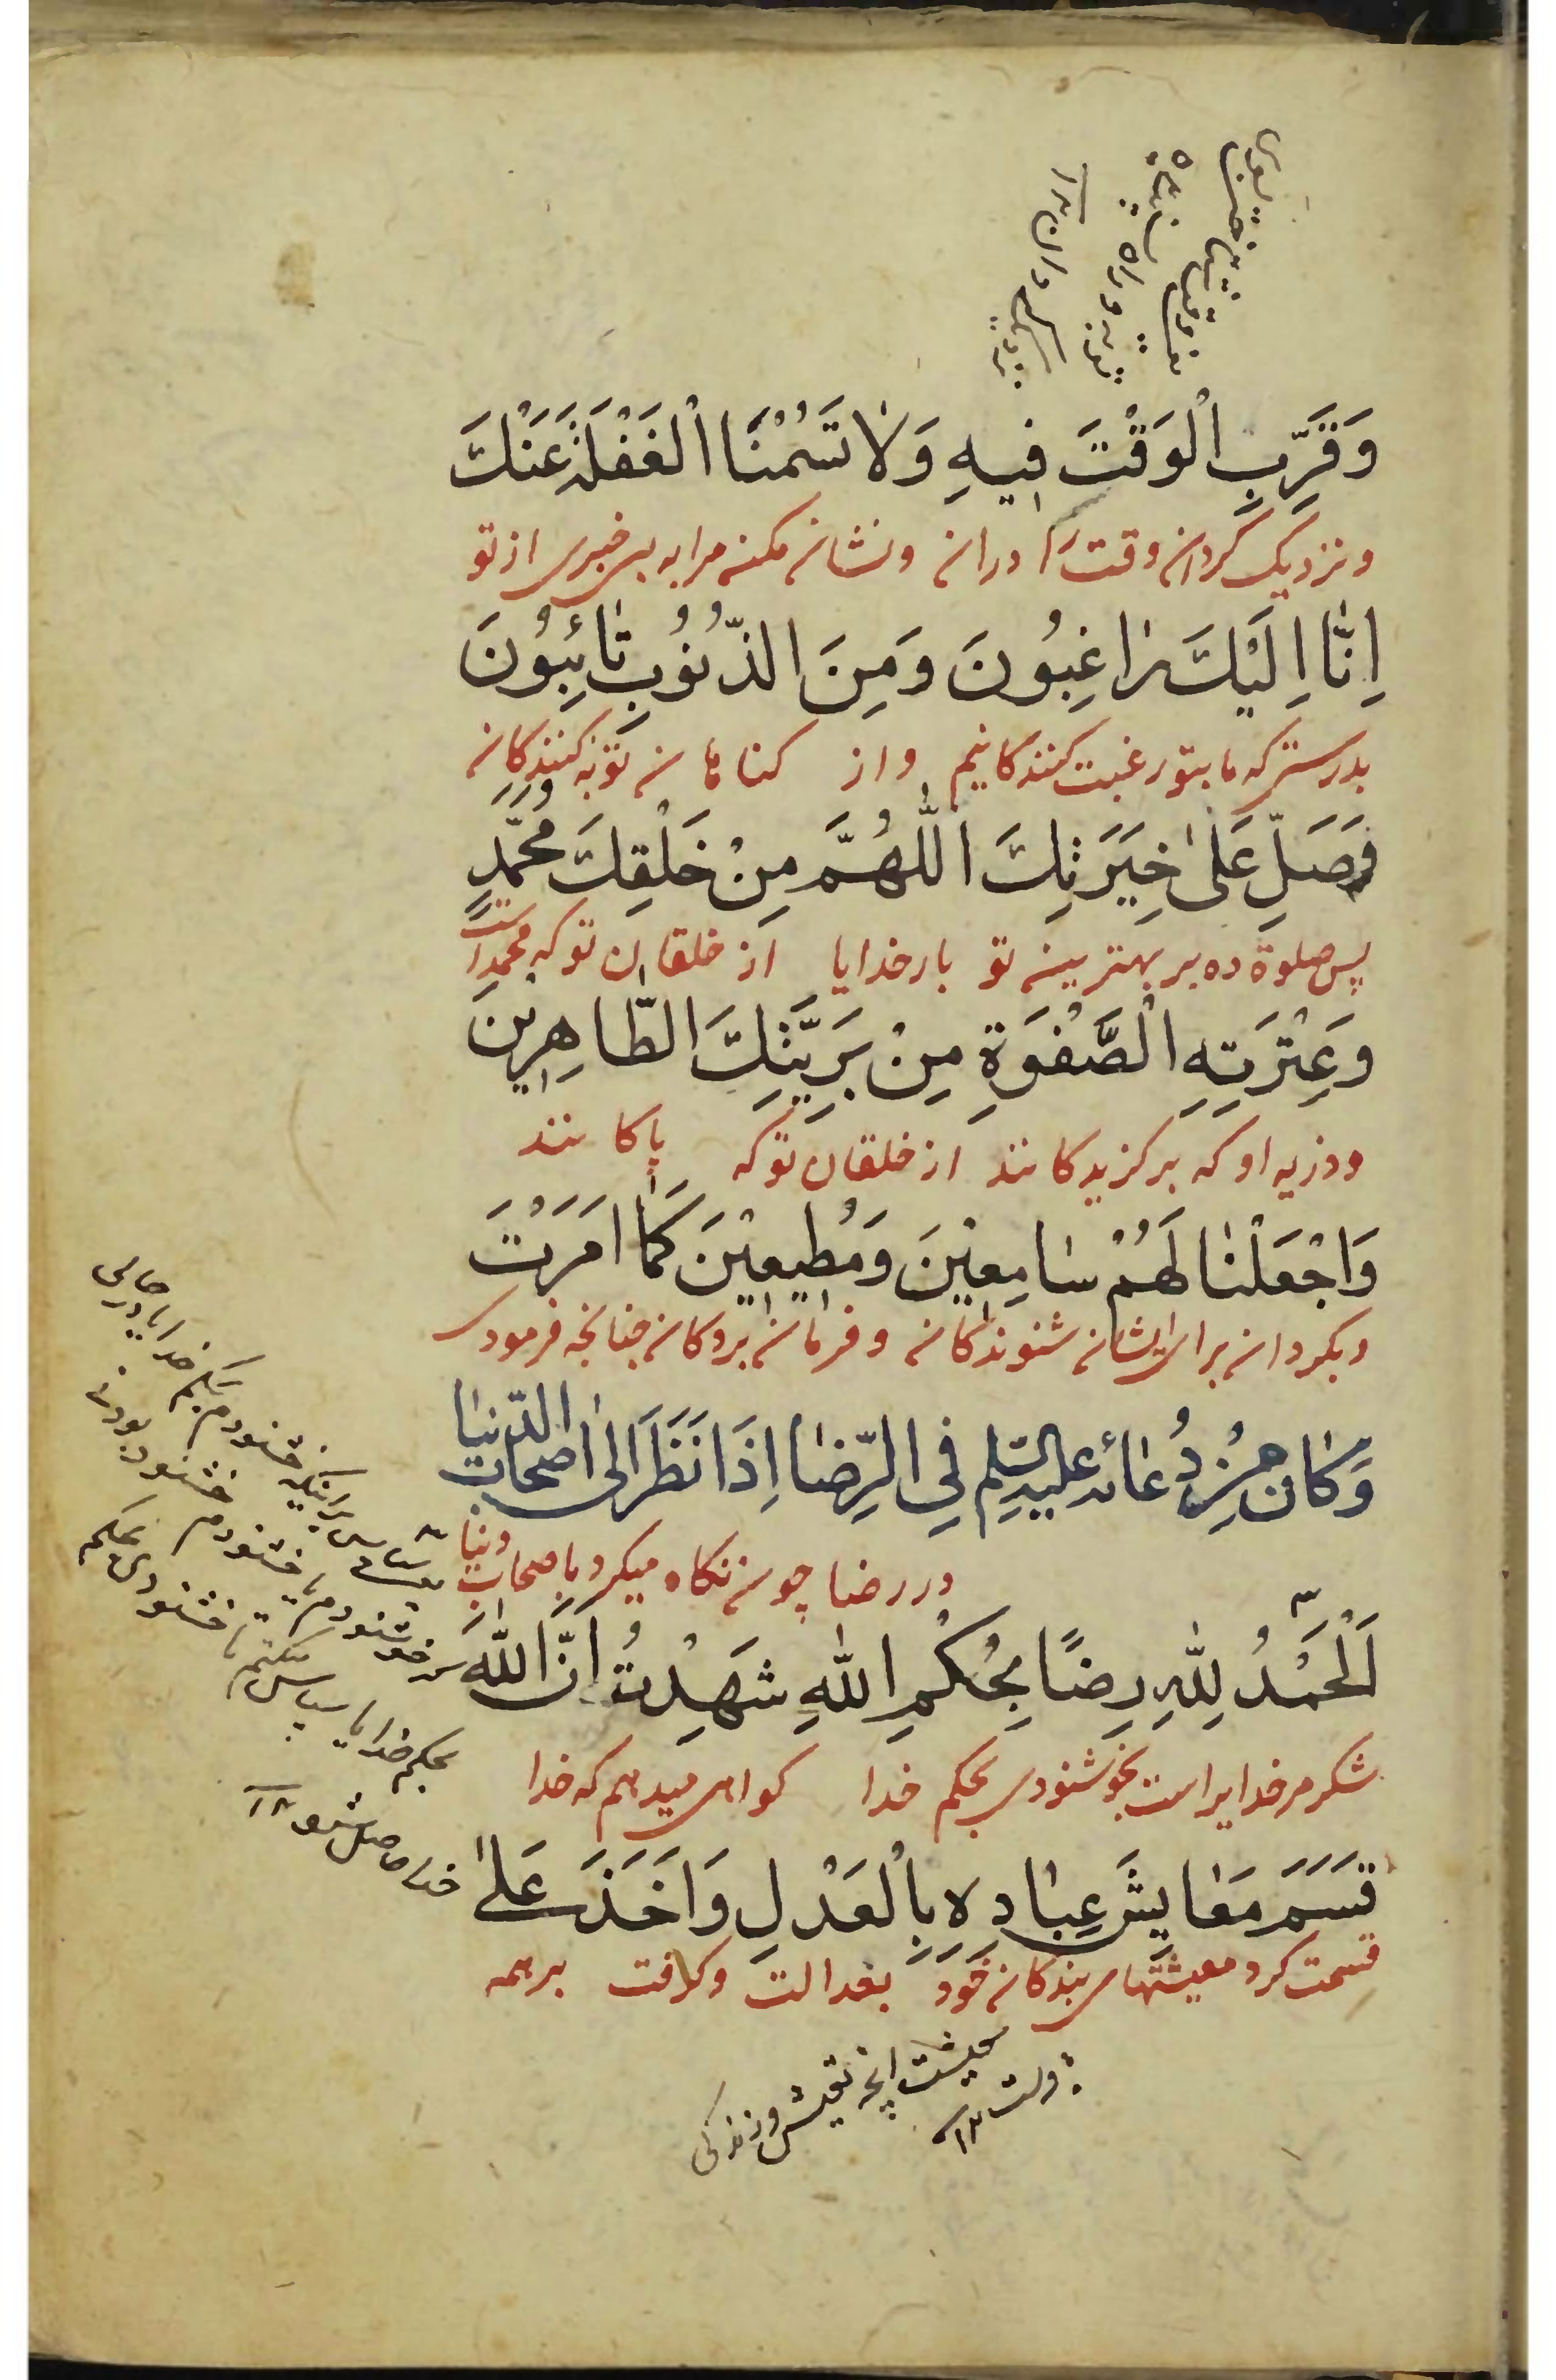 وَقَرِّبِ الْوَقْتَ فِيهِ وَلَا تَسُمْنَا الْغَفْلَةَ عَنْكَ
و نزدیک کردان وقت را دران و نشان مکن مرا به بی خبری از تو
اِنَّا اِلَيْكَ رَاغِبُونَ وَمِنَ الذُّنُوبِ تَائِبُونَ
بدرستی که ما بتو رغبت کنندکانیم و از کناهان توبه کنندکان
فَصَلِّ عَلَى خِيَرَتِكَ اللّٰهُمَّ مِنْ خَلْقِكَ مُحَمَّدٍ
پس صلوة ده بر بهترین تو بار خدایا از خلقان تو که محمد است
وَعِتْرَتِهِ الصَّفْوَةِ مِنْ بَرِيَّتِكَ الطَّاهِرِينَ
و ذریه او که برکزیدکانند از خلقان تو که پاکانند
وَاجْعَلْنَا لَهُمْ سَامِعِينَ وَمُطِيعِينَ كَمَا اَمَرْتَ
و بکردان برای ایشان شنوندکان و فرمان بردکان چنانچه فرمودی
وَكَانَ مِنْ دُعَائِهِ عليه السلم فِي الرِّضَا اِذَا نَظَرَ اِلَى اَصْحَابِ الدُّنْيَا
در رضا چون نکاه میکرد باصحاب دنیا
اَلْحَمْدُ لِلّٰهِ رِضًا بِحُكْمِ اللّٰهِ شَهِدْتُ اَنَّ اللّٰهَ
شکر مر خدایراست بخوشنودی بحکم خدا کواهی میدهم که خدا
قَسَمَ مَعَايِشَ عِبَادِهِ بِالْعَدْلِ وَاَخَذَ عَلَى
قسمت کرد معیشتهای بندکان خود بعدالت و کرفت بر همه
بحکم خدا یا سپاس میکنم تا خشنودی بحکم
خدا حاصل شود ١٢
معیشت انچه تعیش و زندکی